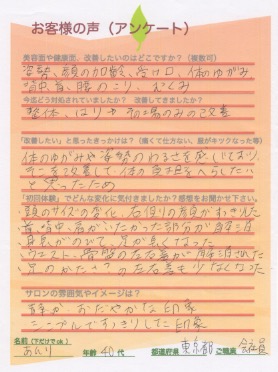 お客様の声（アンケート）
美容面や健康面、改善したいのはどこですか？（複数可）
姿勢、顔の加齢、受け口、体のゆがみ
背中、首、腰のこり、むくみ
今迄どう対処されていましたか？ 改善してきましたか？
整体、はりや
の改善
「改善したい」と思ったきっかけは？（痛くて仕方ない、服がキツクなった等）
体のゆがみや姿勢のわるさを感じており、
を改善して体の負担をへらしたい
と思ったため
「初回体験」でどんな変化に気付きましたか？感想をお聞かせ下さい。
頭のサイズの変化、右側の
首、背中、肩がいたかった部分が解消
身長がのびて、足が長くなった
ウエスト、骨盤の左右差が解消された
足のかたい？の左右差も少なくなった
サロンの雰囲気やイメージは？
静か、おだやかな印象
シンプルですっきりした印象
名前（下だけでok）
あんり 年齢 40代 都道府県 東京都 ご職業 会社員